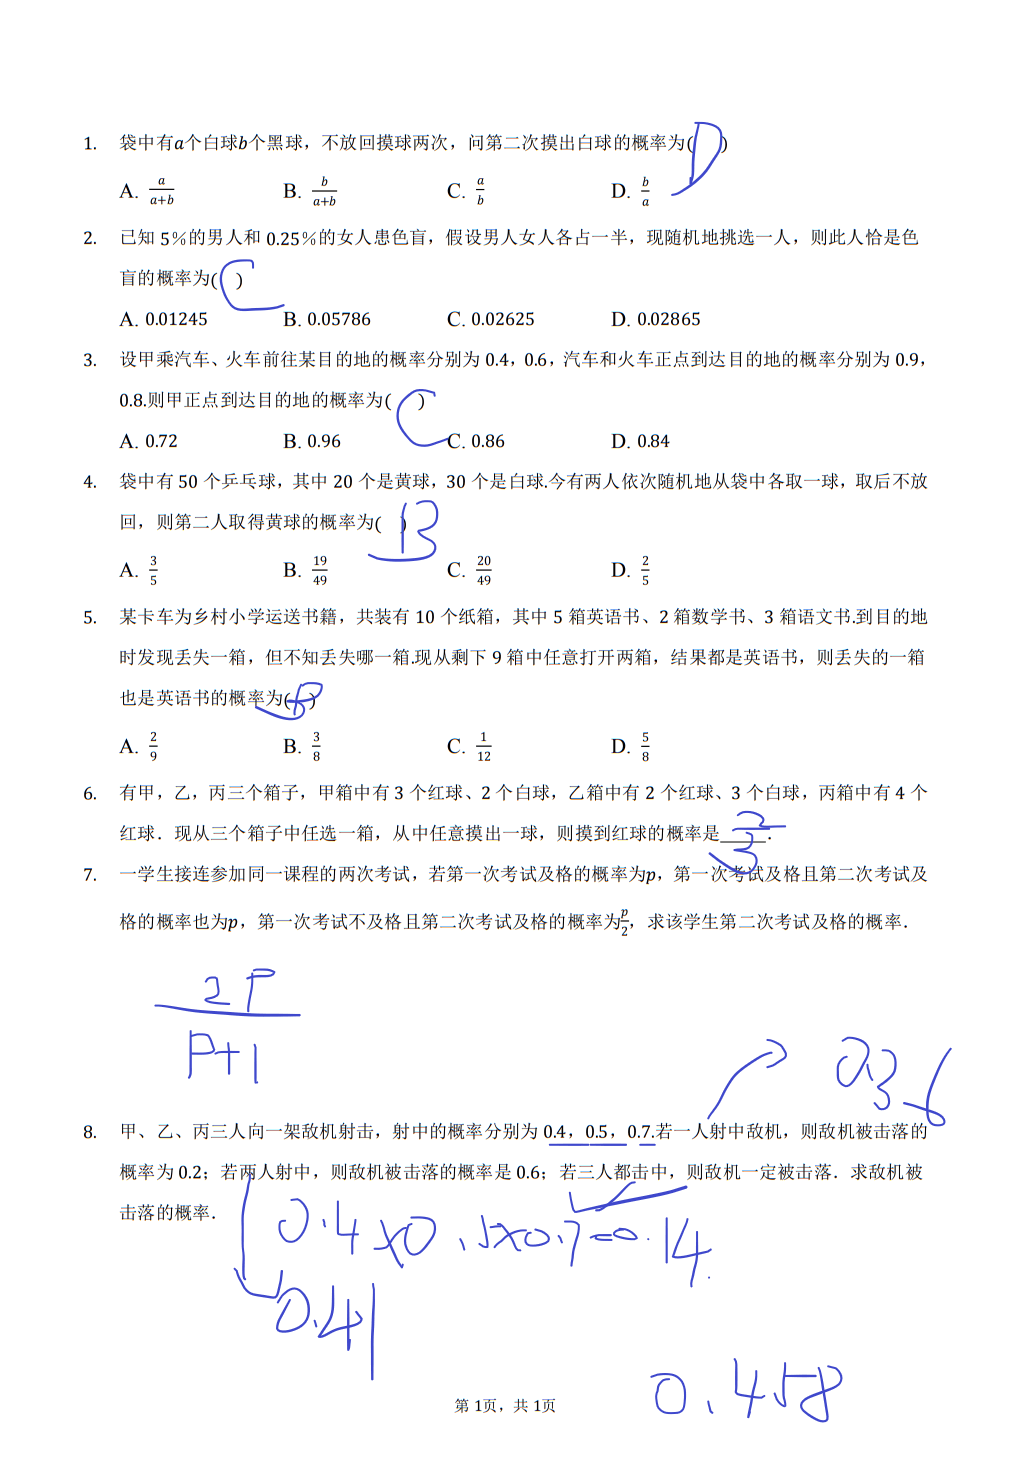 1. 袋中有a个白球b个黑球，不放回摸球两次，问第二次摸出白球的概率为( D )
A. a/(a+b) B. b/(a+b) C. a/b D. b/a
2. 已知 5%的男人和 0.25%的女人患色盲，假设男人女人各占一半，现随机地挑选一人，则此人恰是色
盲的概率为( C )
A. 0.01245 B. 0.05786 C. 0.02625 D. 0.02865
3. 设甲乘汽车、火车前往某目的地的概率分别为 0.4，0.6，汽车和火车正点到达目的地的概率分别为 0.9，
0.8.则甲正点到达目的地的概率为( C )
A. 0.72 B. 0.96 C. 0.86 D. 0.84
4. 袋中有 50 个乒乓球，其中 20 个是黄球，30 个是白球.今有两人依次随机地从袋中各取一球，取后不放
回，则第二人取得黄球的概率为( B )
A. 3/5 B. 19/49 C. 20/49 D. 2/5
5. 某卡车为乡村小学运送书籍，共装有 10 个纸箱，其中 5 箱英语书、2 箱数学书、3 箱语文书.到目的地
时发现丢失一箱，但不知丢失哪一箱.现从剩下 9 箱中任意打开两箱，结果都是英语书，则丢失的一箱
也是英语书的概率为( )
A. 2/9 B. 3/8 C. 1/12 D. 5/8
6. 有甲，乙，丙三个箱子，甲箱中有 3 个红球、2 个白球，乙箱中有 2 个红球、3 个白球，丙箱中有 4 个
红球．现从三个箱子中任选一箱，从中任意摸出一球，则摸到红球的概率是 2/3 ．
7. 一学生接连参加同一课程的两次考试，若第一次考试及格的概率为p，第一次考试及格且第二次考试及
格的概率也为p，第一次考试不及格且第二次考试及格的概率为p/2，求该学生第二次考试及格的概率．
2P/(P+1)
0.36
8. 甲、乙、丙三人向一架敌机射击，射中的概率分别为 0.4，0.5，0.7.若一人射中敌机，则敌机被击落的
概率为 0.2；若两人射中，则敌机被击落的概率是 0.6；若三人都击中，则敌机一定被击落．求敌机被
击落的概率．
0.4×0.5×0.7=0.14
0.41
0.458
第 1页，共 1页